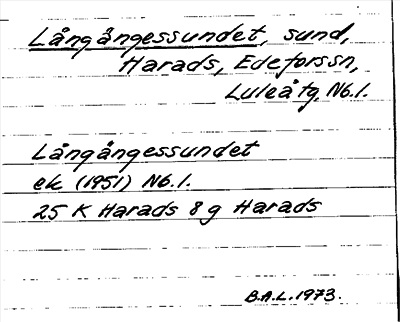 Långångessundet, sund,
Harads, Edeforssn,
Luleåtg, Nb.l.
Långångessundet
ek (1951) Nb.l.
25 K Harads 8 g Harads
B.A.L. 1973.